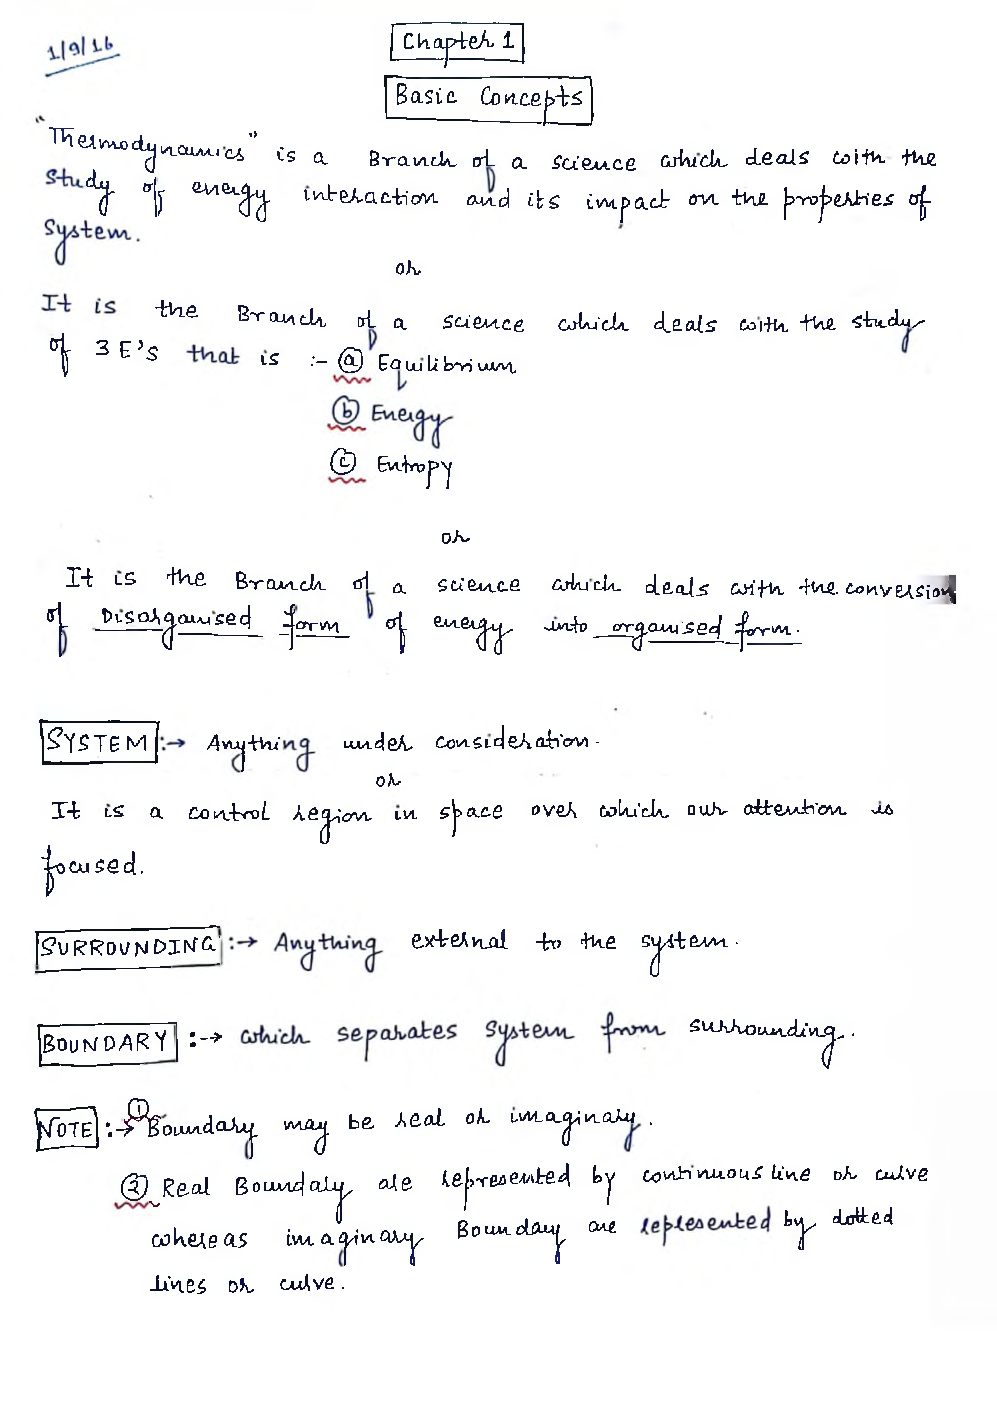 1/9/16
Chapter 1
Basic Concepts
"Thermodynamics" is a Branch of a science which deals with the
study of energy interaction and its impact on the properties of
system.
or
It is the Branch of a science which deals with the study
of 3 E's that is :- (a) Equilibrium
(b) Energy
(c) Entropy
or
It is the Branch of a science which deals with the conversion
of Disorganised form of energy into organised form.
SYSTEM :→ Anything under consideration.
or
It is a control region in space over which our attention is
focused.
SURROUNDING :→ Anything external to the system.
BOUNDARY :→ which separates system from surrounding.
NOTE :→ ① Boundary may be real or imaginary.
② Real Boundary are represented by continuous line or curve
whereas imaginary Boundary are represented by dotted
lines or curve.